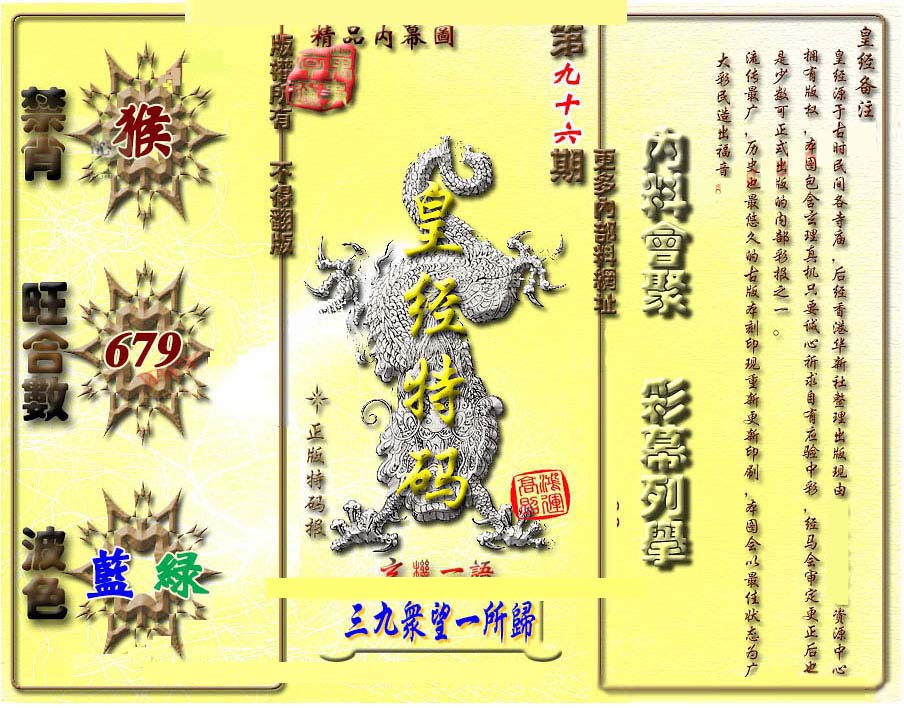 禁肖
猴
旺合數
679
波色
藍 綠
精品内幕圖
版權所有 不得翻版
第九十六期
更多內部料網址
皇经特码
正版特码报
鴻運高照
玄機一語
三九衆望一所歸
內料會聚 彩幕列舉
皇经备注
皇经源于古时民间各寺庙，后经香港华新社整理出版现由 资源中心
拥有版权，本图包含玄理真机只要诚心祈求自有应验中彩，经马会审定更正后也
是少数可正式出版的内部彩报之一。
流传最广，历史也最悠久的古版本刻印现重新更新印刷，本图会以最佳状态为广
大彩民造出福音